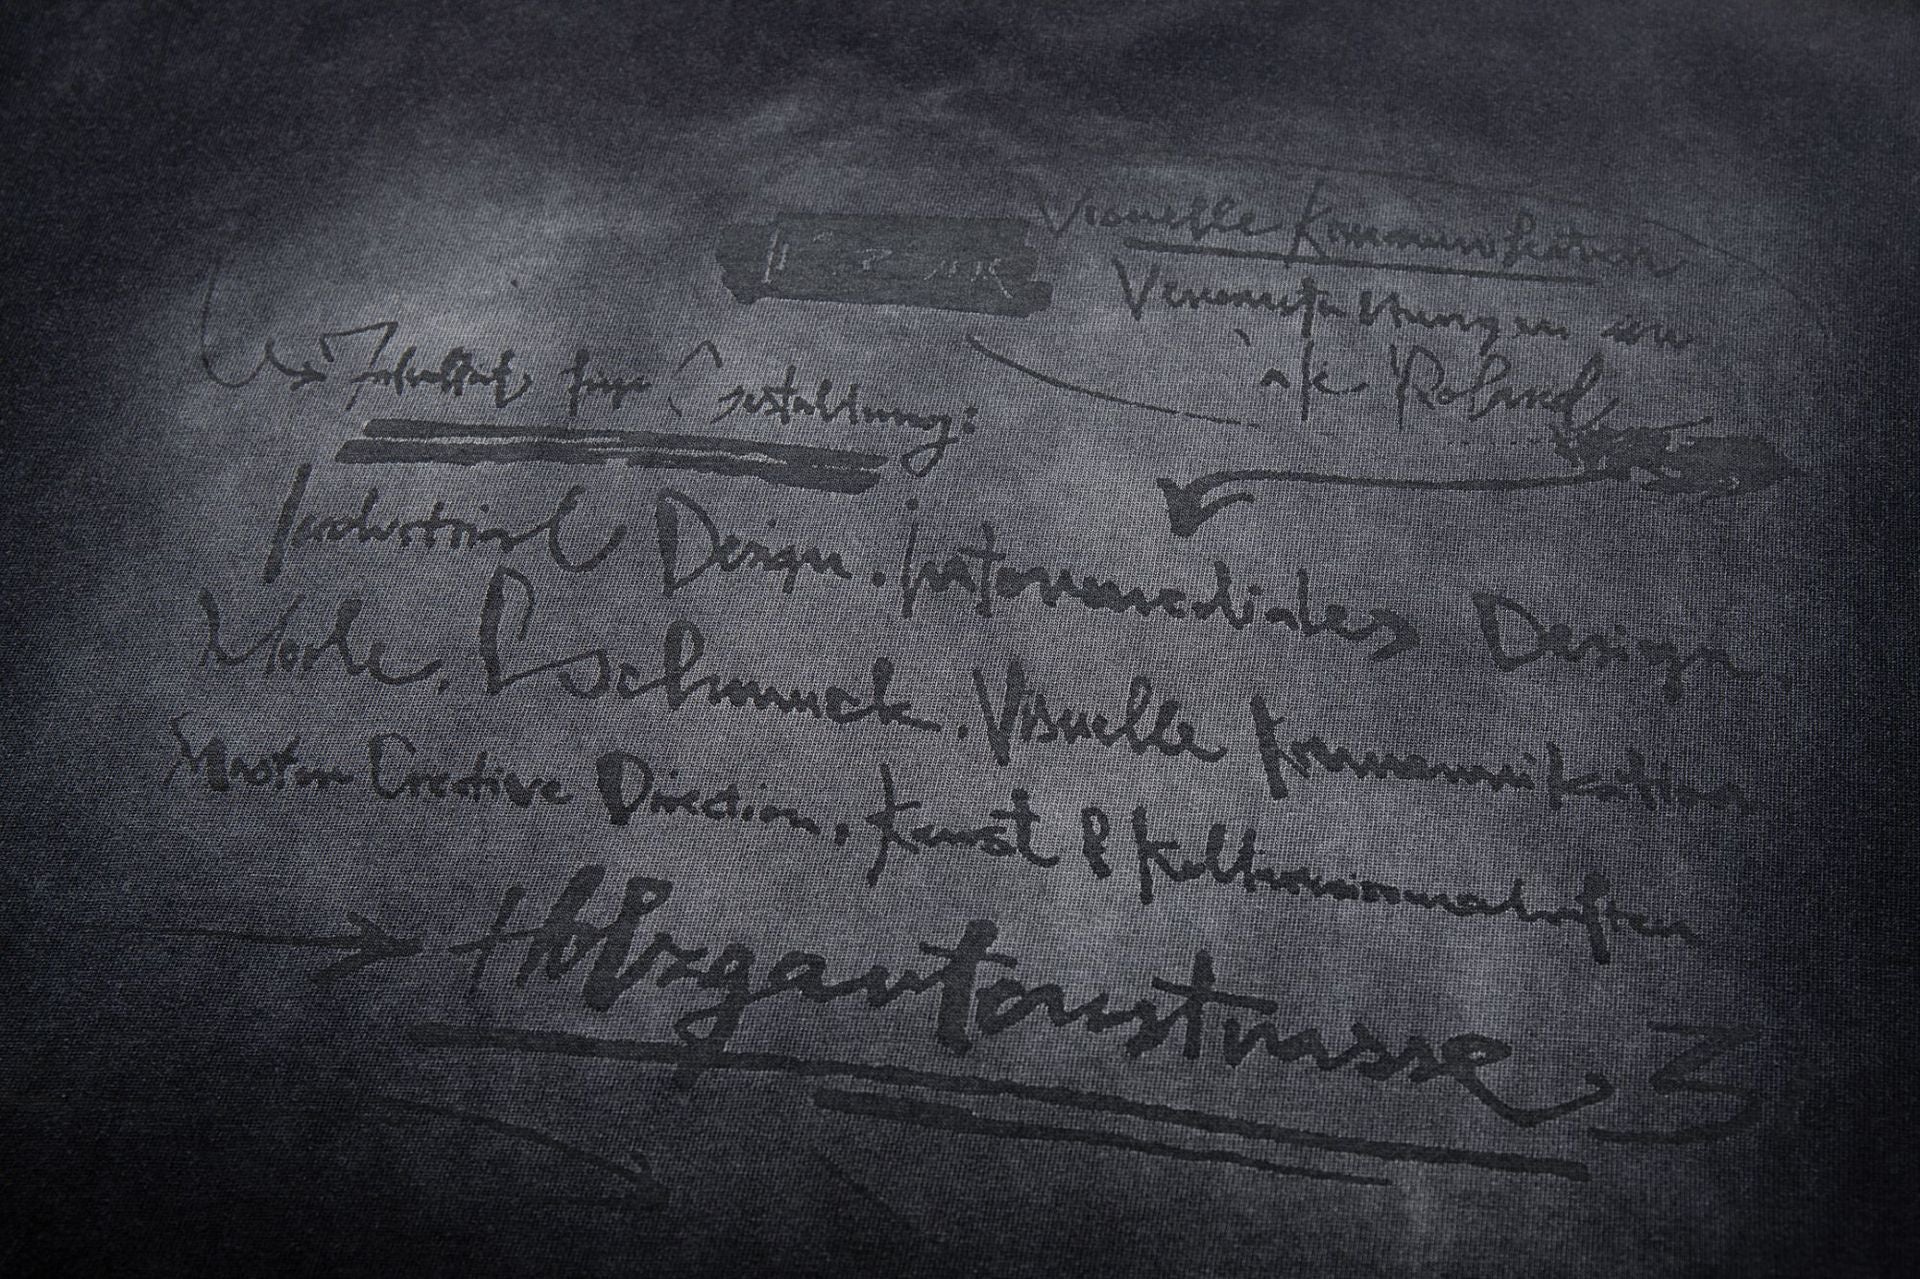 Visuelle Kommunikation
Veranstaltungen an
a/c Roland
Fakultät für Gestaltung:
Industrial Design. Intermediales Design
Mode. Schmuck. Visuelle Kommunikation
Master Creative Direction, Kunst & Kulturwissenschaften
Holzgartenstrasse